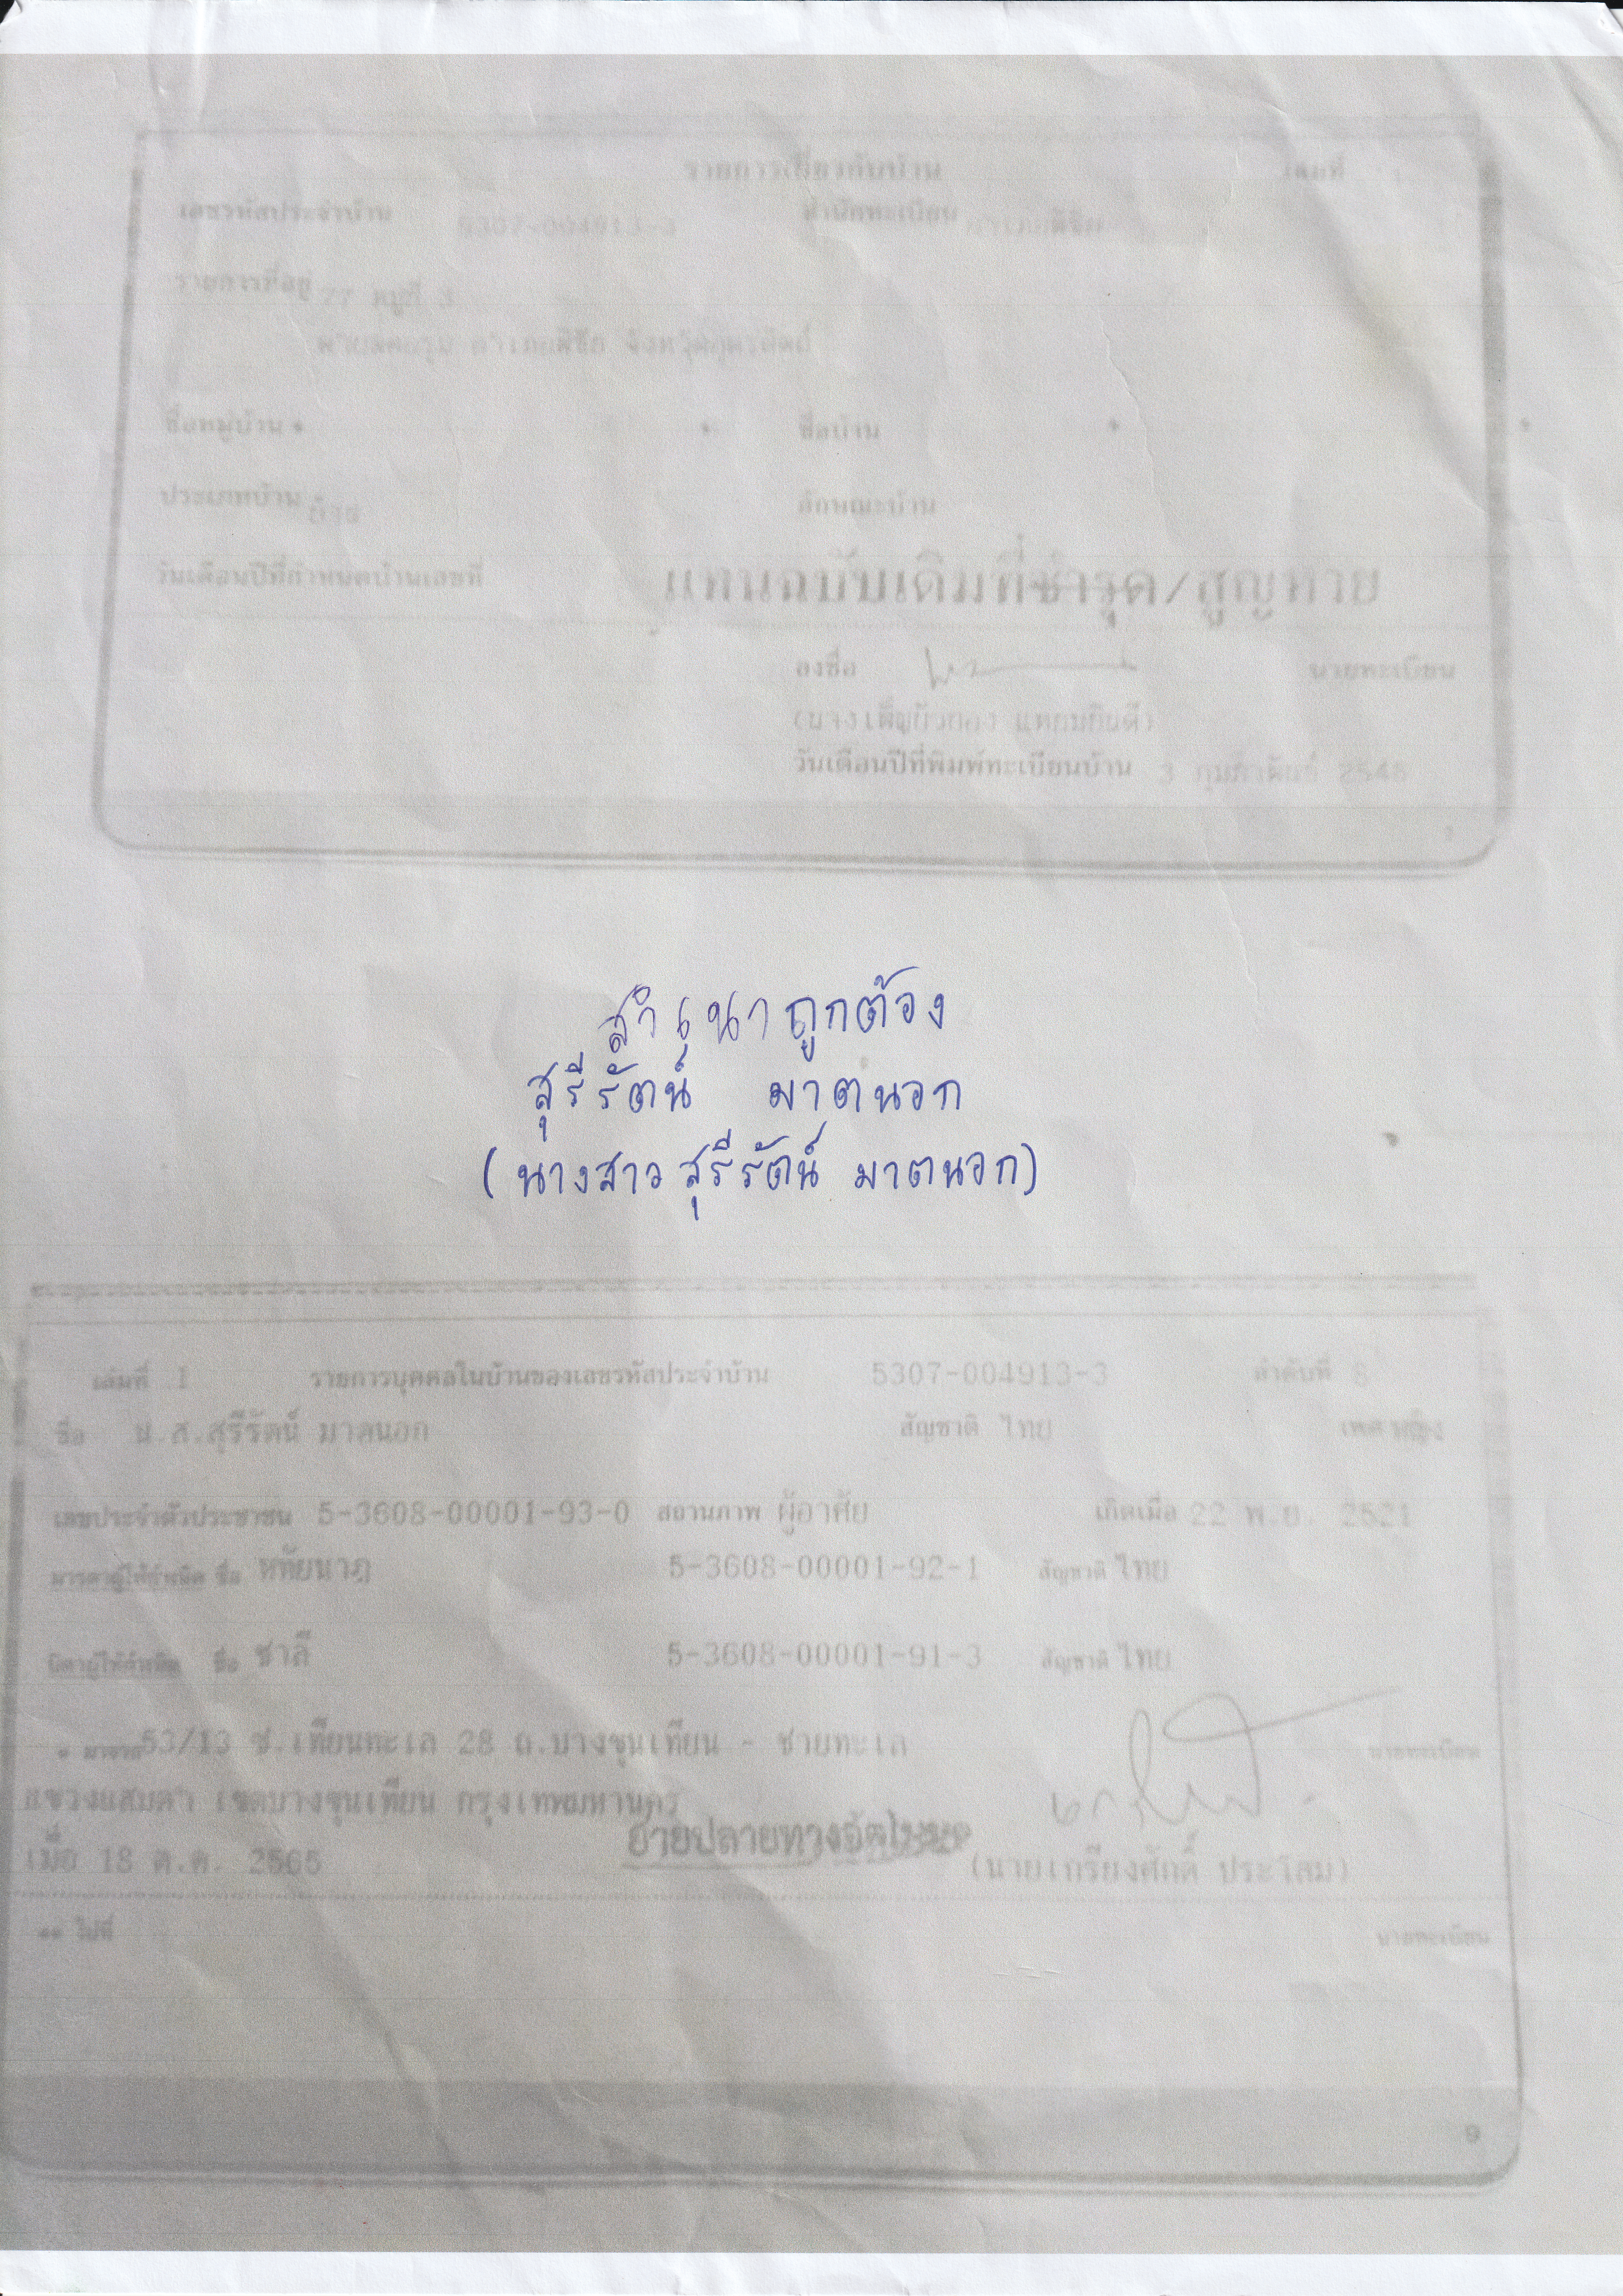 รายการเกี่ยวกับบ้าน เล่มที่
เลขรหัสประจำบ้าน 5307-004913-3 สำนักทะเบียน
รายการที่อยู่ 77 หมู่ที่ 3
จังหวัดอุตรดิตถ์
ชื่อหมู่บ้าน ชื่อบ้าน
ประเภทบ้าน บ้าน ลักษณะบ้าน
วันเดือนปีที่กำหนดบ้านเลขที่
แทนฉบับเดิมที่ชำรุด/สูญหาย
ลงชื่อ นายทะเบียน
วันเดือนปีที่พิมพ์ทะเบียนบ้าน 3 กุมภาพันธ์
สำเนาถูกต้อง
สุรีรัตน์ มาตนอก
(นางสาวสุรีรัตน์ มาตนอก)
เล่มที่ 1 รายการบุคคลในบ้านของเลขรหัสประจำบ้าน 5307-004913-3 ลำดับที่
ชื่อ น.ส.สุรีรัตน์ มาตนอก สัญชาติ ไทย เพศ หญิง
เลขประจำตัวประชาชน 5-3608-00001-93-0 สถานภาพ ผู้อาศัย เกิดเมื่อ 22 พ.ย. 2521
มารดาผู้ให้กำเนิด ชื่อ หทัยนาฎ 5-3608-00001-92-1 สัญชาติ ไทย
บิดาผู้ให้กำเนิด ชื่อ ชาลี 5-3608-00001-91-3 สัญชาติ ไทย
* มาจาก 53/13 ซ.เทียนทะเล 28 ถ.บางขุนเทียน - ชายทะเล นายทะเบียน
แขวงแสมดำ เขตบางขุนเทียน กรุงเทพมหานคร
ย้ายปลายทางอัตโนมัติ
เมื่อ 18 ต.ค. 2565 (นายเกรียงศักดิ์ ประโสม)
** ไปที่ นายทะเบียน
9